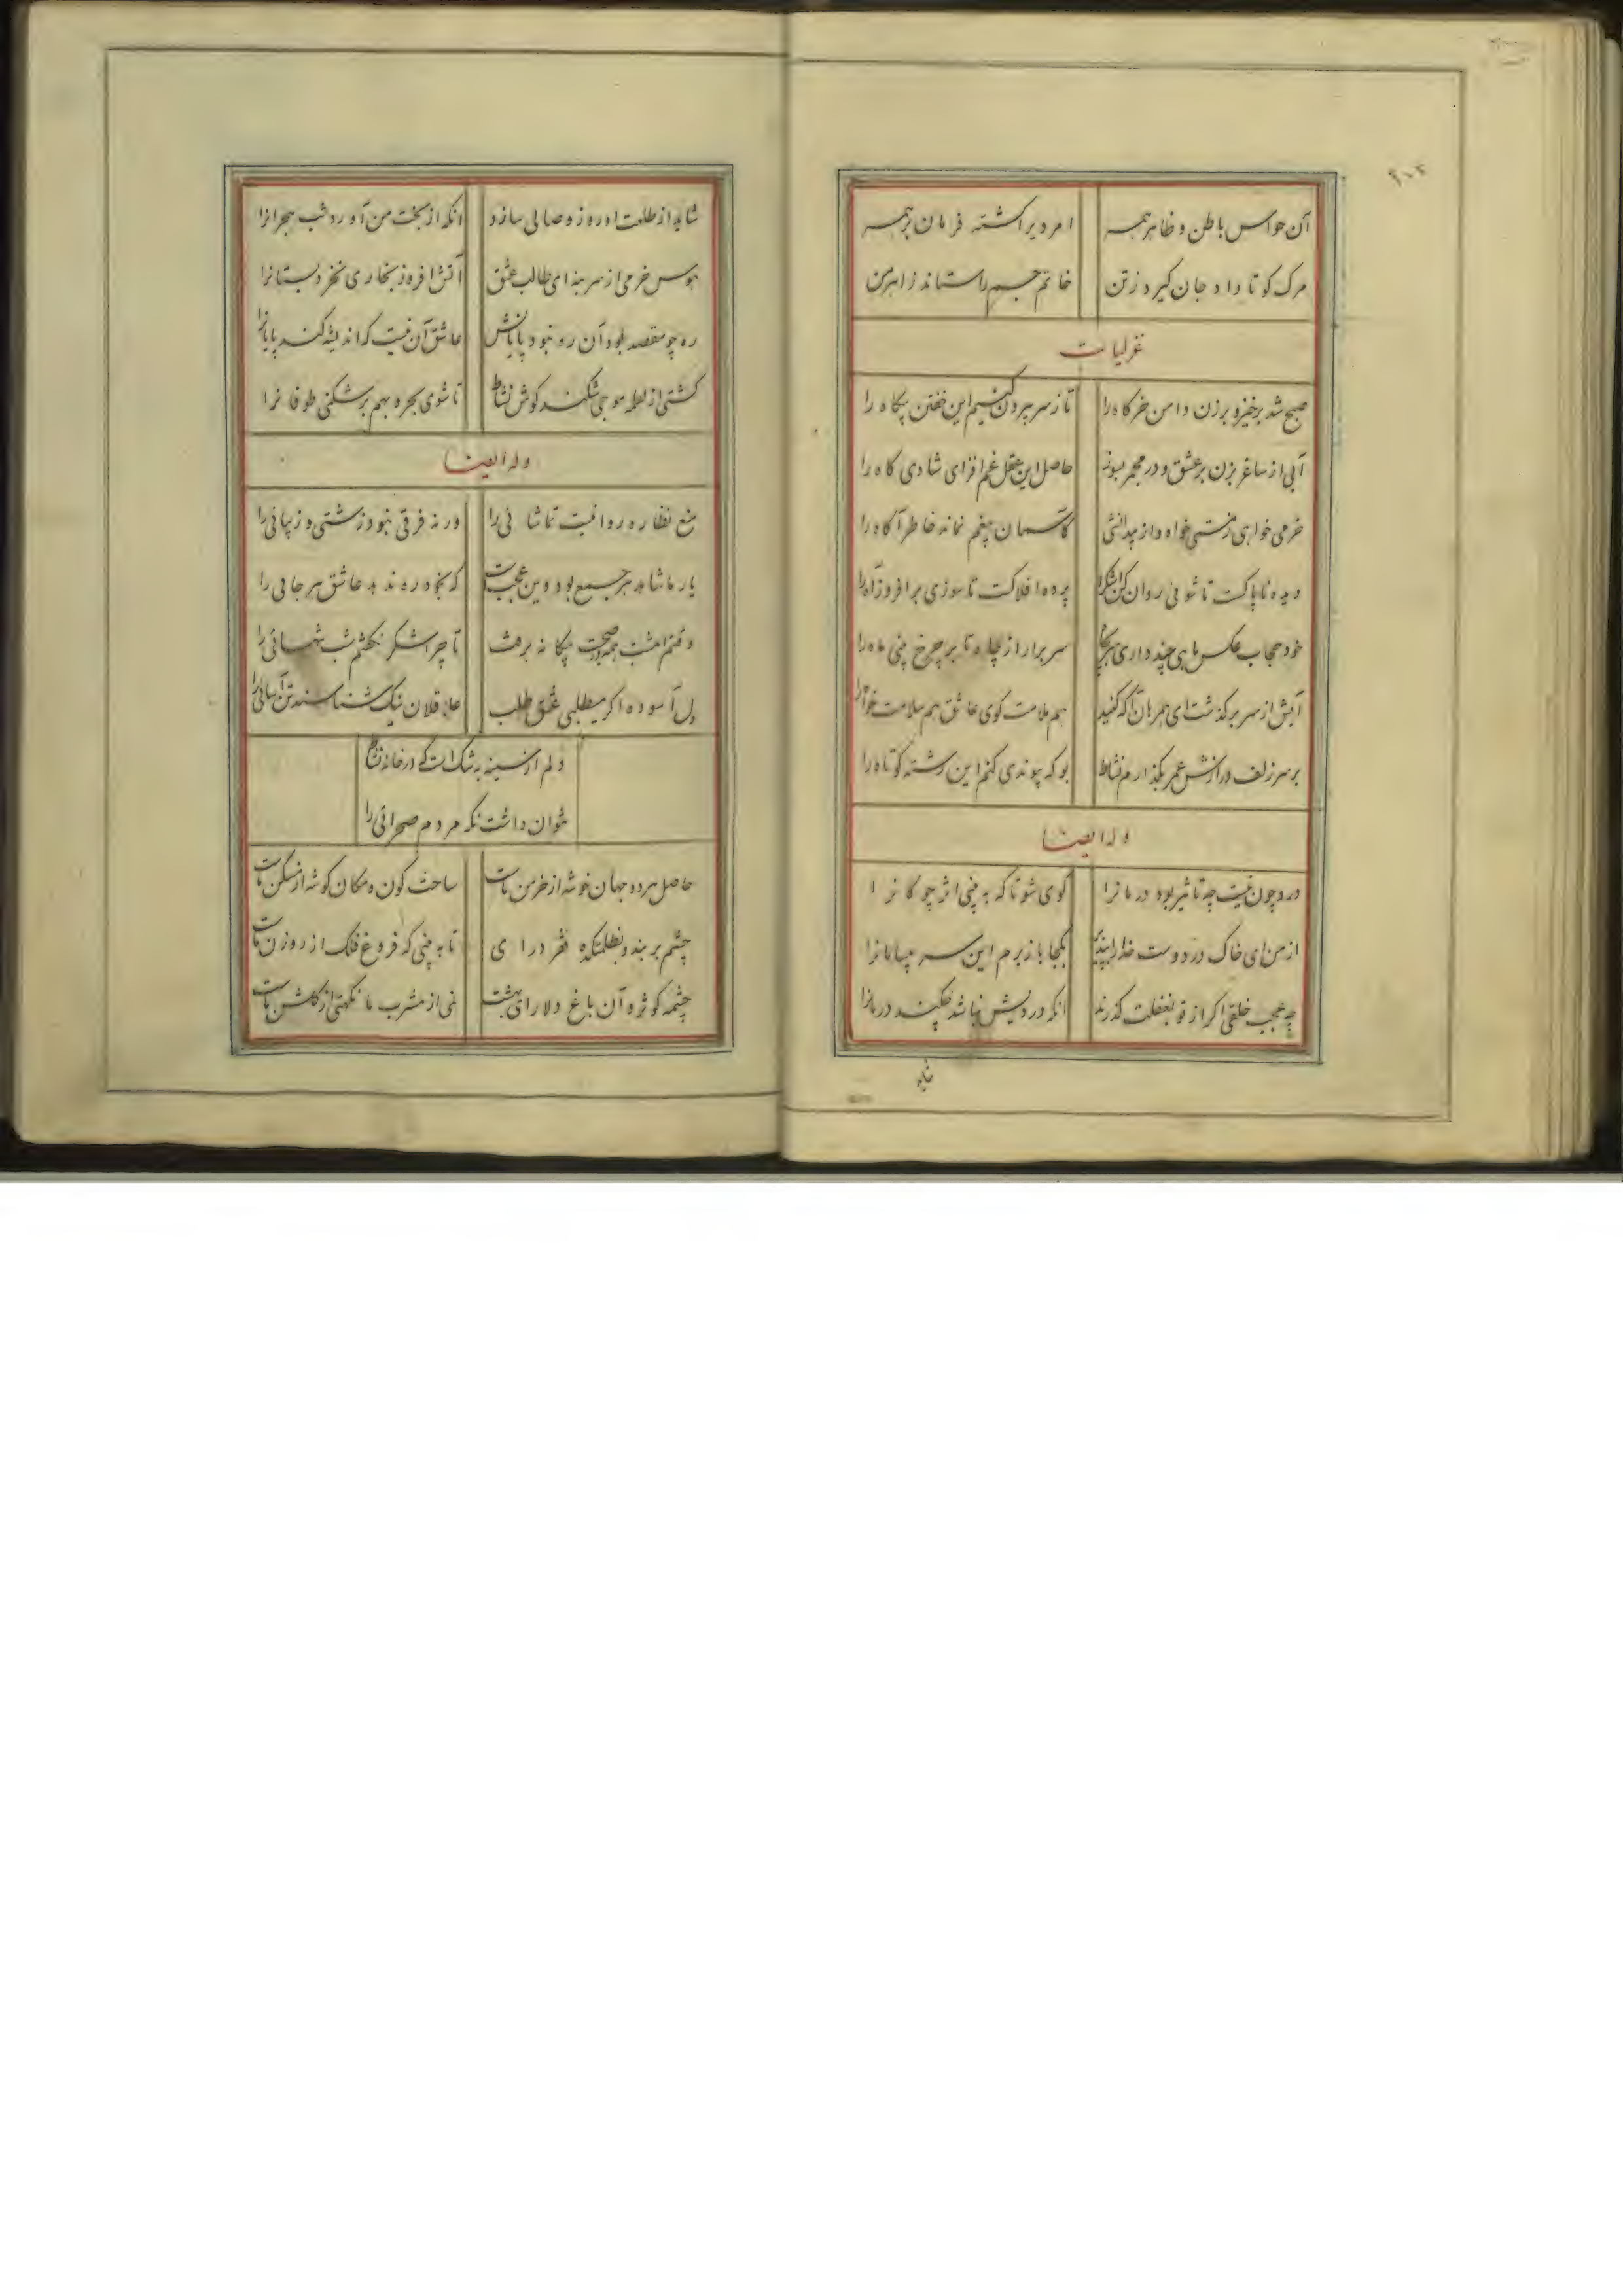 ۲۰۲
آن حواس باطن و ظاهر همه امر دیرا گشته فرمان بر همه
مرک کو تا داد جان گیرد ز تن خاتم جسم را ستاند ز اهرمن
غزلیات
صبح شد برخیز و بر زن دامن خرگاه را تا ز سر بیرون کنیم این خفتن بیگاه را
آبی از ساغر بزن بر عشق و در مجمر بسوز حاصل این عقل غم افزای شادی کاه را
خرمی خواهی ز مستی خواه و از بیدانشی کاسمان بیغم نماند خاطر آگاه را
دیده ناپاکست تا شوئی روان کن اشک را پرده افلاکست تا سوزی بر افروز آه را
خود حجاب عکس ماهی چند داری سر بچاه سر برآر از چاه تا بر چرخ بینی ماه را
آبش از سر بر گذشت ای همرهان آگه کنید هم ملامت گوی عاشق هم سلامت خواه را
بر سر زلف درازش عمر بگذارم نشاط بو که پیوندی کنم این رشته کوتاه را
وله ایضا
درد چون نیست چه تاثیر بود درمانرا گوی شو تا که به بینی اثر چوگانرا
از من ای خاک در دوست خدا را بپذیر بکجا باز برم این سر بیسامانرا
چه عجب خلقی اگر از تو بغفلت گذرند انکه دردیش نباشد چکند درمانرا
شاید
شاید از طلعت او روز وصالی سازد انکه از بخت من آورد شب هجرانرا
هوس خرمی از سر بنه ای طالب عشق آتش افروز بخاری نخرد بستانرا
ره چو مقصد بود آن ره نبود پایانش عاشق آن نیست که اندیشه کند پایانرا
کشتی از لطمه موجی شکند کوش نشاط تا شوی بحر و بهم بر شکنی طوفانرا
وله ایضا
منع نظاره روا نیست تماشائی را ورنه فرقی نبود زشتی و زیبائی را
یار ما شاهد هر جمع بود وین عجبست که بخود ره ندهد عاشق هرجائی را
وقتم امشب همه در صحبت بیگانه برفت تا چرا شکر نگفتم شب تنهائی را
دل آسوده اگر میطلبی عشق طلب عاقلان نیک شناسند تن آسائی را
دلم از سینه به تنگ است گه در خانه نشاط
نتوان داشت نگه مردم صحرائی را
حاصل هر دو جهان خوشه از خرمن ماست ساحت کون و مکان گوشه از مسکن ماست
چشم بر بند و بظلمتکده فقر درای تا به بینی که فروغ فلک از روزن ماست
چشمه کوثر و آن باغ دلارای بهشت نمی از مشرب ما نکهتی از گلشن ماست